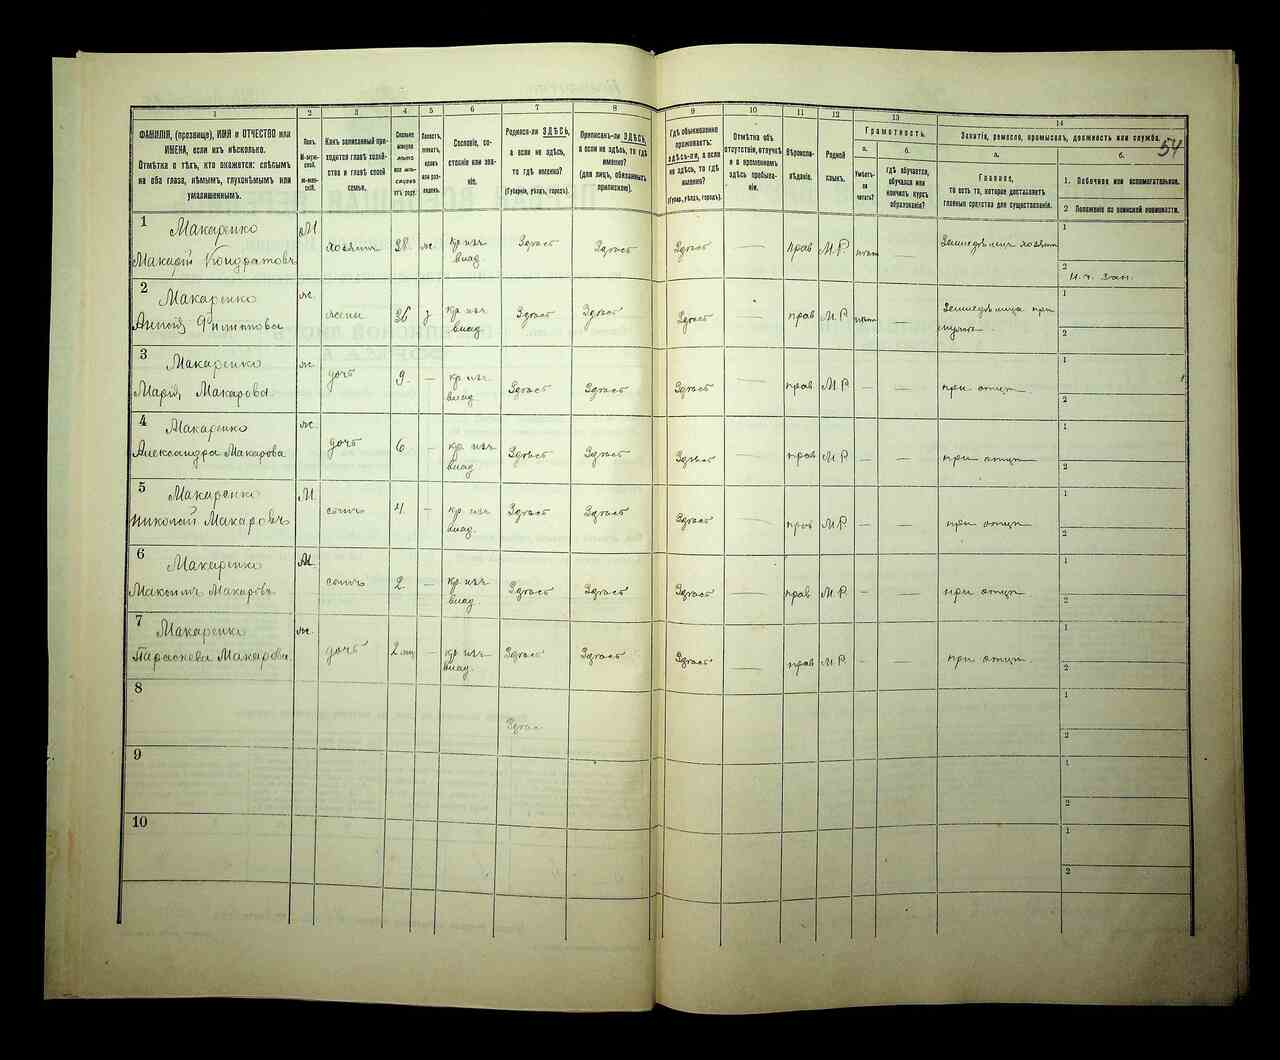 1 2 3 4 5 6 7 8 9 10 11 12 13 14
54
ФАМИЛІЯ, (прозвище), ИМЯ и ОТЧЕСТВО или
ИМЕНА, если ихъ нѣсколько.
Отмѣтка о тѣхъ, кто окажется: слѣпымъ
на оба глаза, нѣмымъ, глухонѣмымъ или
умалишеннымъ.
Полъ.
М-муж-
ской.
ж-жен-
скій.
Какъ записанный при-
ходится главѣ хозяй-
ства и главѣ своей
семьи.
Сколько
минуло
лѣтъ
или мѣ-
сяцевъ
отъ роду.
Холостъ,
женатъ,
вдовъ
или раз-
веденъ.
Сословіе, со-
стояніе или зва-
ніе.
Родился-ли ЗДѢСЬ,
а если не здѣсь,
то гдѣ именно?
(Губернія, уѣздъ, городъ).
Приписанъ-ли ЗДѢСЬ,
а если не здѣсь, то гдѣ
именно?
(для лицъ, обязанныхъ
припискою).
Гдѣ обыкновенно
проживаетъ:
здѣсь-ли, а если
не здѣсь, то гдѣ
именно?
(Губер., уѣздъ, городъ).
Отмѣтка объ
отсутствіи, отлучкѣ
и о временномъ
здѣсь пребыва-
ніи.
Вѣроиспо-
вѣданіе.
Родной
языкъ.
Грамотность.
а. б.
Умѣетъ-
ли
читать?
гдѣ обучается,
обучался или
кончилъ курсъ
образованія?
Занятіе, ремесло, промыселъ, должность или служба.
а. б.
Главное,
то есть то, которое доставляетъ
главныя средства для существованія.
1. Побочное или вспомогательное.
2 Положеніе по воинской повинности.
1 Макаренко М. 1
Макарій Кондратовъ хозяинъ 38 ж кр изъ Здѣсь Здѣсь Здѣсь — прав М.Р. — 2
влад.
2 Макаренко ж. 1
Филиппова жена 36 з кр. изъ Здѣсь Здѣсь Здѣсь — прав М.Р. — 2
влад.
3 Макаренко ж. 1
Марія Макарова дочь 9 — кр. изъ Здѣсь Здѣсь Здѣсь — прав М.Р. — — при отцѣ 2
влад
4 Макаренко ж. 1
Александра Макарова дочь 6 — кр. изъ Здѣсь Здѣсь Здѣсь — прав М.Р. — — при отцѣ 2
влад
5 Макаренко М. 1
Николай Макаровъ сынъ 4 — кр. изъ Здѣсь Здѣсь Здѣсь — прав М.Р. — — при отцѣ 2
влад.
6 Макаренко М. 1
Максимъ Макаровъ сынъ 2 — кр изъ Здѣсь Здѣсь Здѣсь — прав М.Р. — — при отцѣ 2
влад.
7 Макаренко ж. 1
Параскева Макарова дочь 2 — кр изъ Здѣсь Здѣсь Здѣсь — прав М.Р. — — при отцѣ 2
влад.
8 1
2
9 1
2
10 1
2